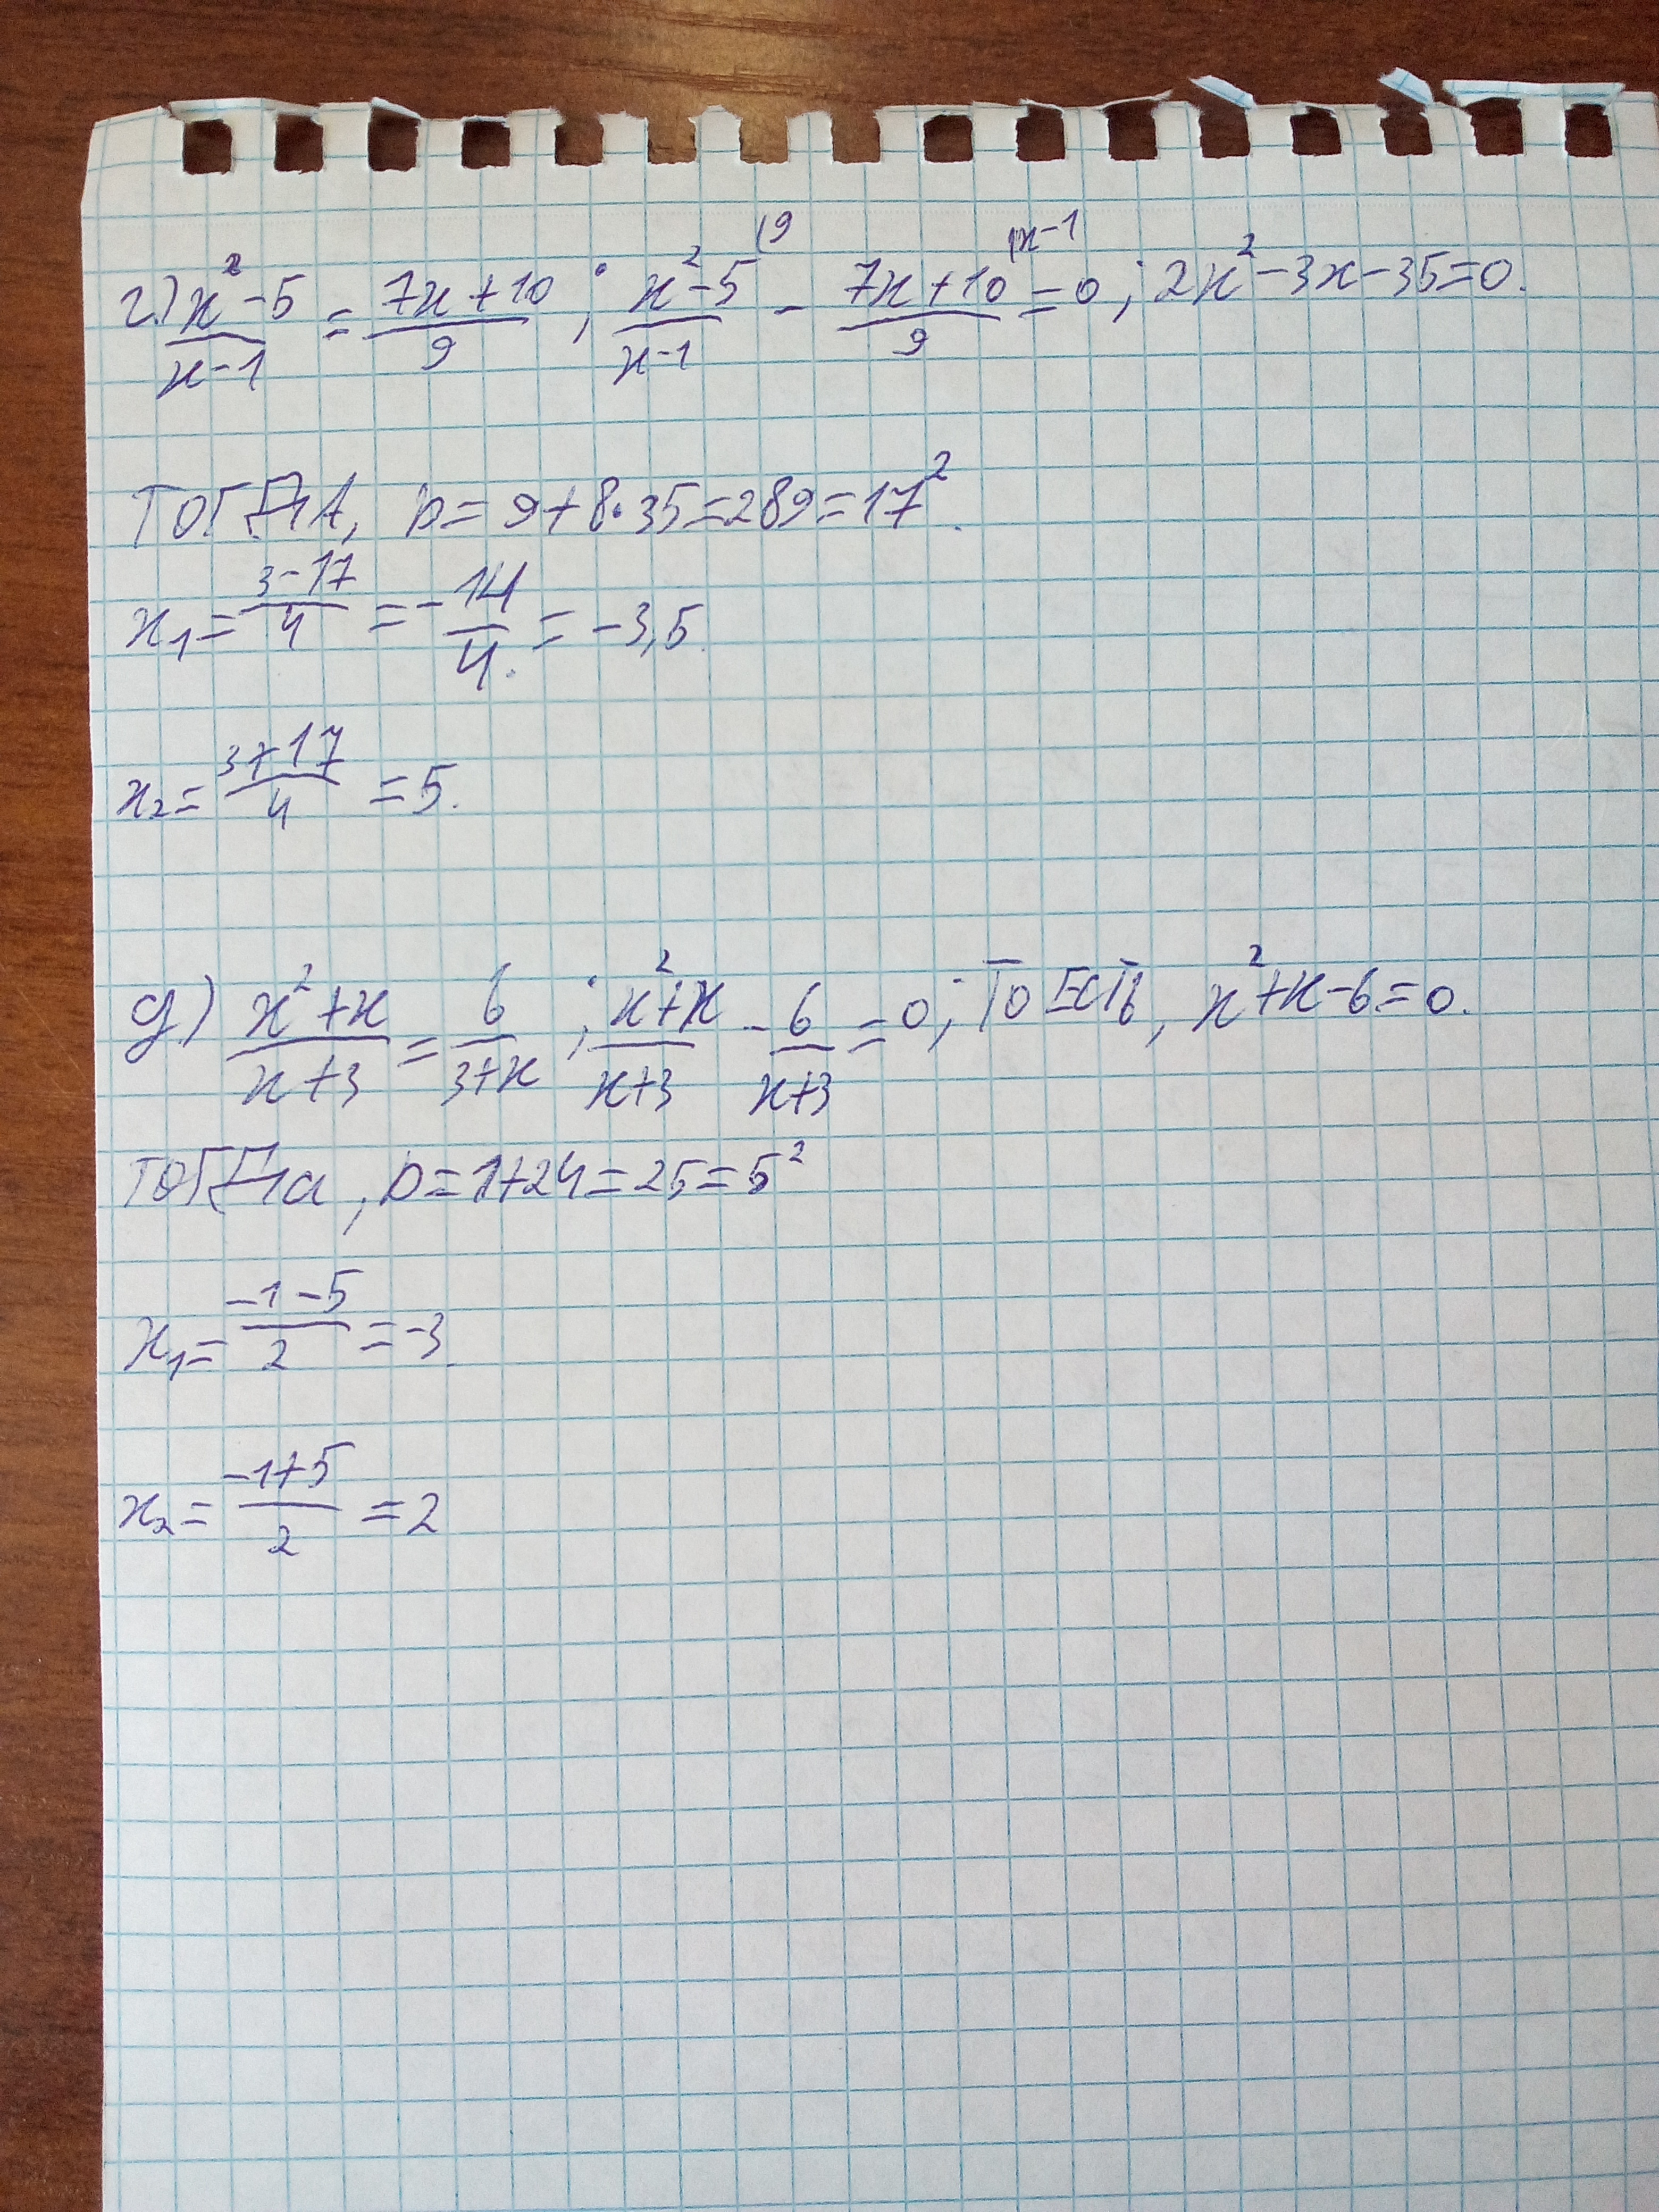 г.) x²-5/x-1 = 7x+10/9 ; x²-5/x-1 (9 - 7x+10/9 |x-1 = 0 ; 2x²-3x-35=0.
ТОГДА, D= 9+8·35=289=17².
x₁= 3-17/4 = -14/4. = -3,5.
x₂= 3+17/4 =5.
д) x²+x/x+3 = 6/3+x ; x²+x/x+3 - 6/x+3 =0; ТО ЕСТЬ, x²+x-6=0.
ТОГДа, D=1+24=25=5²
x₁= -1-5/2 =-3.
x₂= -1+5/2 =2